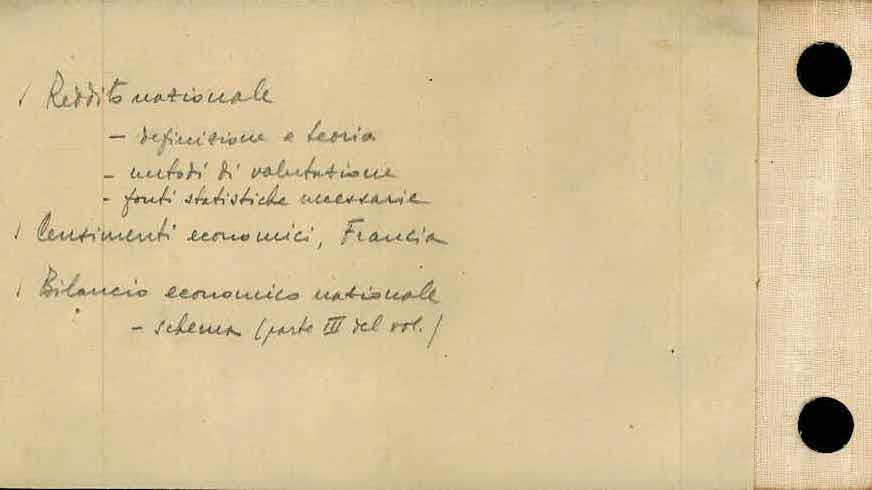 / Reddito nazionale
- definizione e teoria
- metodi di valutazione
- fonti statistiche necessarie
/ Censimenti economici, Francia
/ Bilancio economico nazionale
- schema (parte III del vol.)